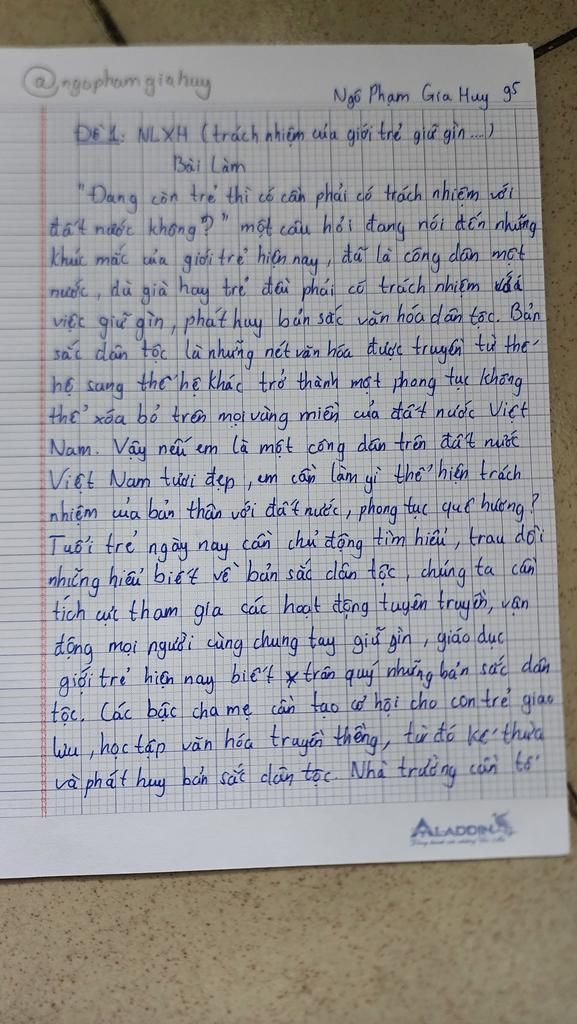 @ngophamgiahuy
Ngô Phạm Gia Huy 95
Đề 1: NLXH (trách nhiệm của giới trẻ giữ gìn ....)
Bài Làm
"Đang còn trẻ thì có cần phải có trách nhiệm với
đất nước không?" một câu hỏi đang nói đến những
khúc mắc của giới trẻ hiện nay, đã là công dân một
nước, dù già hay trẻ đều phải có trách nhiệm với
việc giữ gìn, phát huy bản sắc văn hóa dân tộc. Bản
sắc dân tộc là những nét văn hóa được truyền từ thế
hệ sang thế hệ khác trở thành một phong tục không
thể xóa bỏ trên mọi vùng miền của đất nước Việt
Nam. Vậy nếu em là một công dân trên đất nước
Việt Nam tươi đẹp, em cần làm gì thể hiện trách
nhiệm của bản thân với đất nước, phong tục quê hương?
Tuổi trẻ ngày nay cần chủ động tìm hiểu, trau dồi
những hiểu biết về bản sắc dân tộc, chúng ta cần
tích cực tham gia các hoạt động tuyên truyền, vận
động mọi người cùng chung tay giữ gìn, giáo dục
giới trẻ hiện nay biết trân quý những bản sắc dân
tộc. Các bậc cha mẹ cần tạo cơ hội cho con trẻ giao
lưu, học tập văn hóa truyền thống, từ đó kế thừa
và phát huy bản sắc dân tộc. Nhà trường cần tổ
ALADDIN